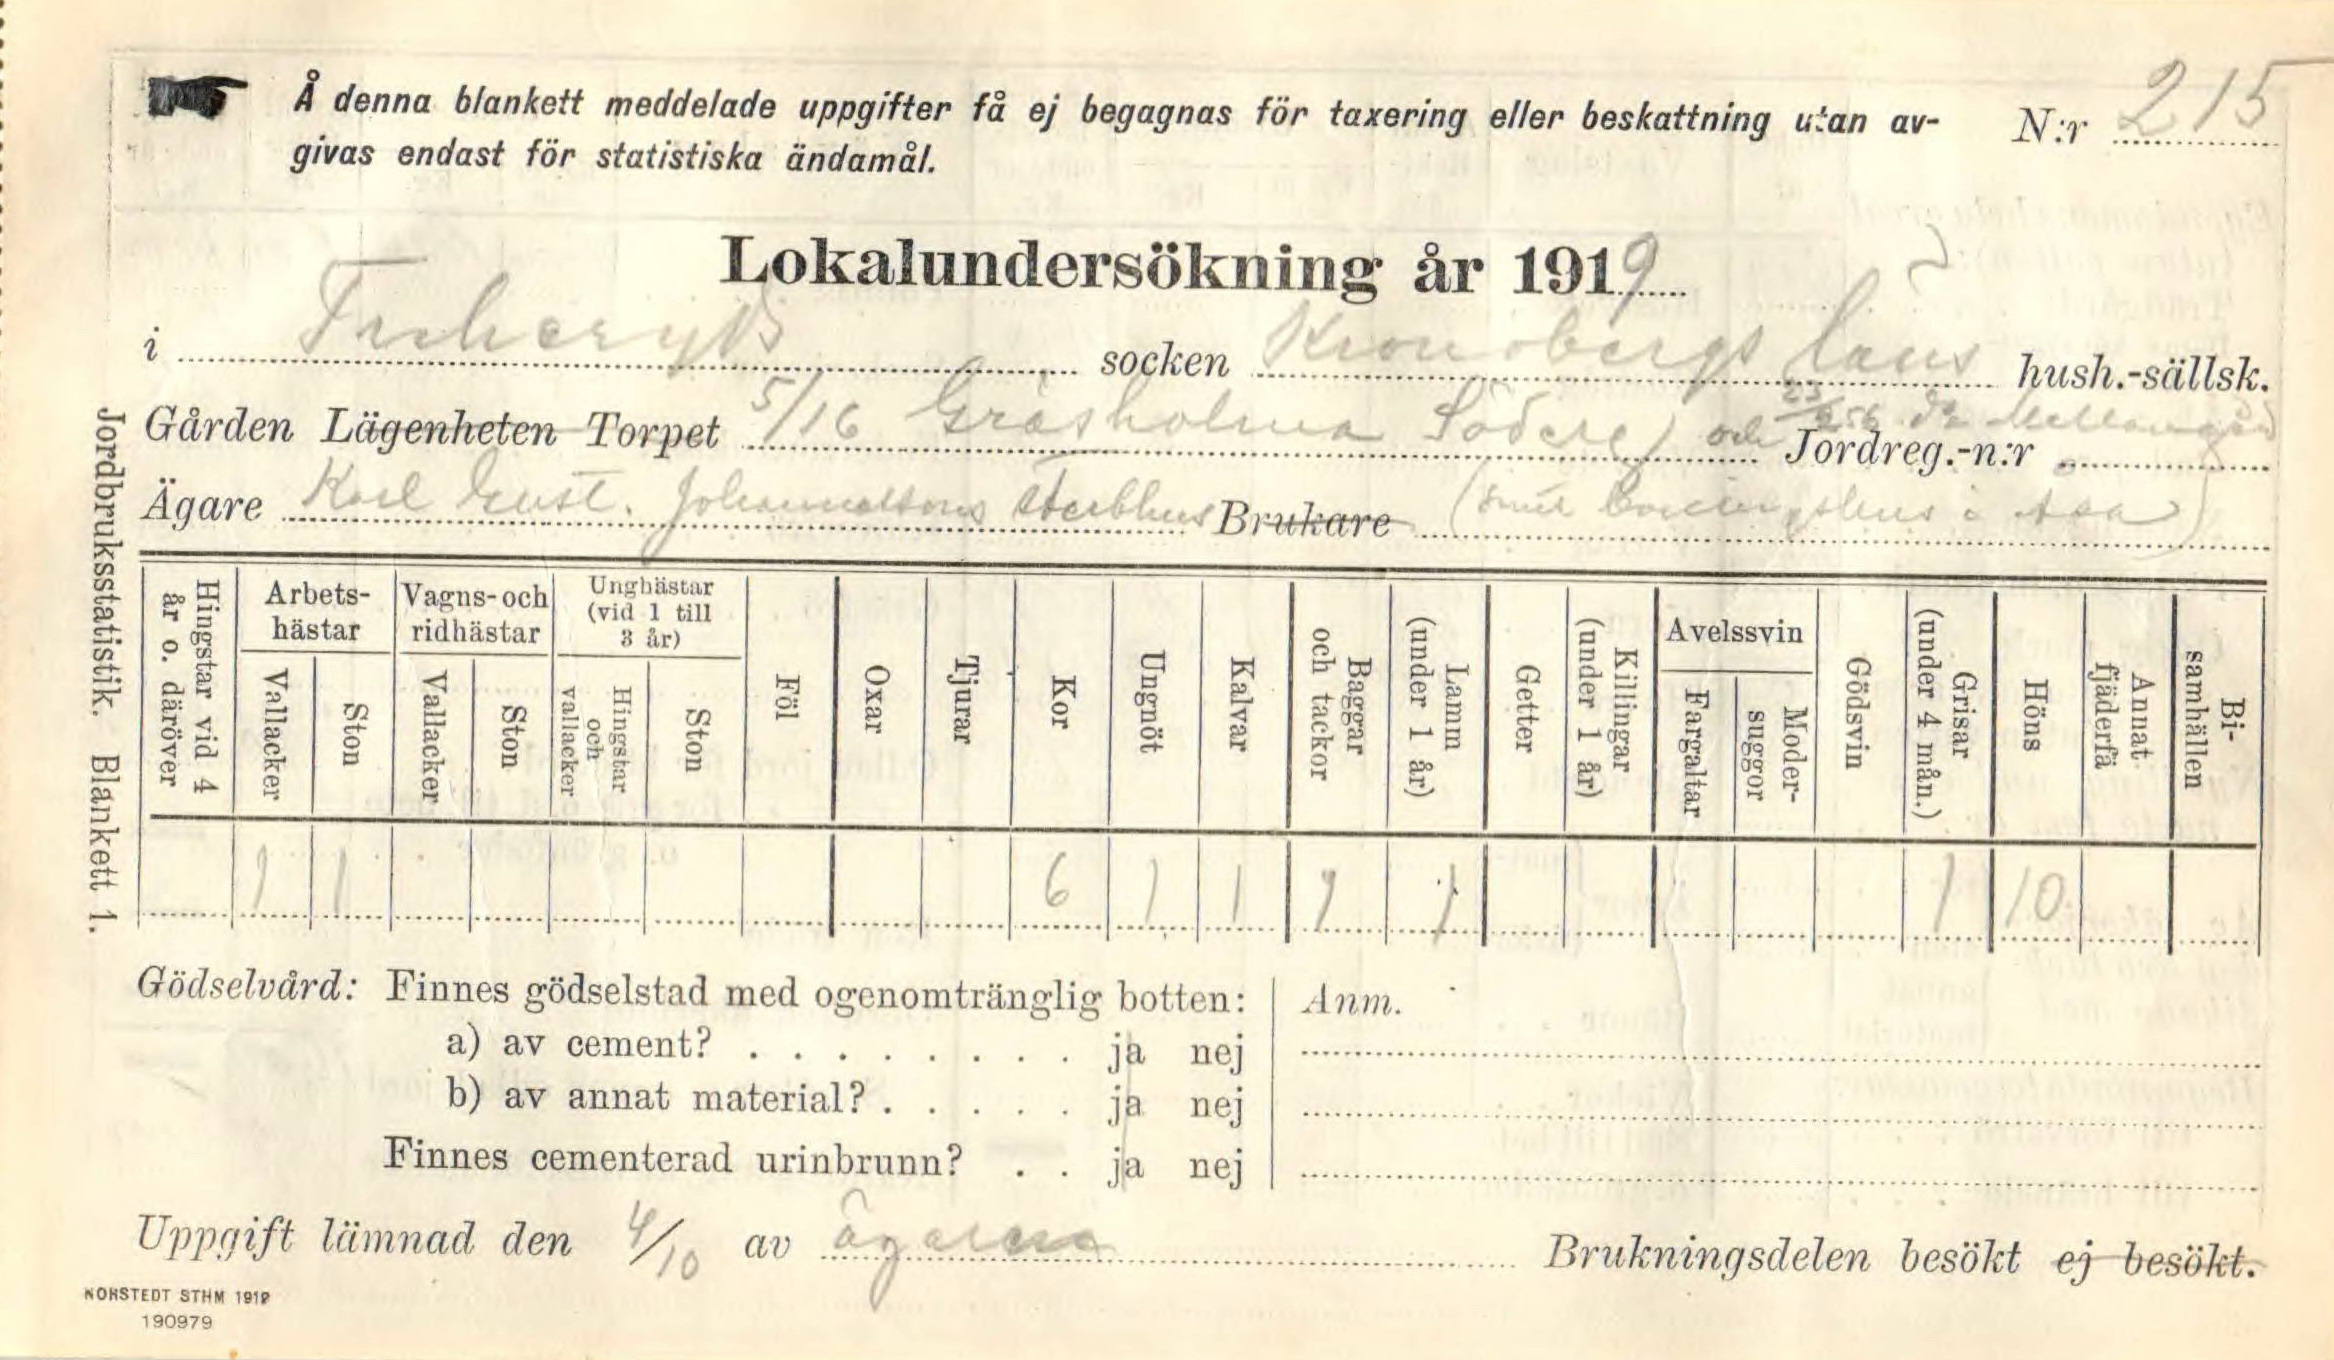 Å denna blankett meddelade uppgifter få ej begagnas för taxering eller beskattning utan av-
givas endast för statistiska ändamål.
N:r 215
Lokalundersökning år 1919
i Fryheryd socken Kronobergs läns hush.-sällsk.
Gården Lägenheten Torpet 5/16 Gräsholma Söderg och Jordreg.-n:r
Ägare Karl Gust. Johannessons Sterbhus Brukare
Jordbruksstatistik. Blankett 1.
Hingstar vid 4 år o. däröver
Arbets-hästar
Vallacker
Ston
Vagns- och ridhästar
Vallacker
Ston
Unghästar (vid 1 till 3 år)
Hingstar och vallacker
Ston
Föl
Oxar
Tjurar
Kor
Ungnöt
Kalvar
Baggar och tackor
Lamm (under 1 år)
Getter
Killingar (under 1 år)
Avelssvin
Fargaltar
Moder-suggor
Gödsvin
Grisar (under 4 mån.)
Höns
Annat fjäderfä
Bi-samhällen
1 1 6 1 1 1 1 1 10
Gödselvård: Finnes gödselstad med ogenomtränglig botten:
a) av cement? . . . . . . . . ja nej
b) av annat material? . . . . . ja nej
Finnes cementerad urinbrunn? . . ja nej
Anm.
Uppgift lämnad den 4/10 av ägaren Brukningsdelen besökt ej besökt.
NORSTEDT STHM 1919
190979